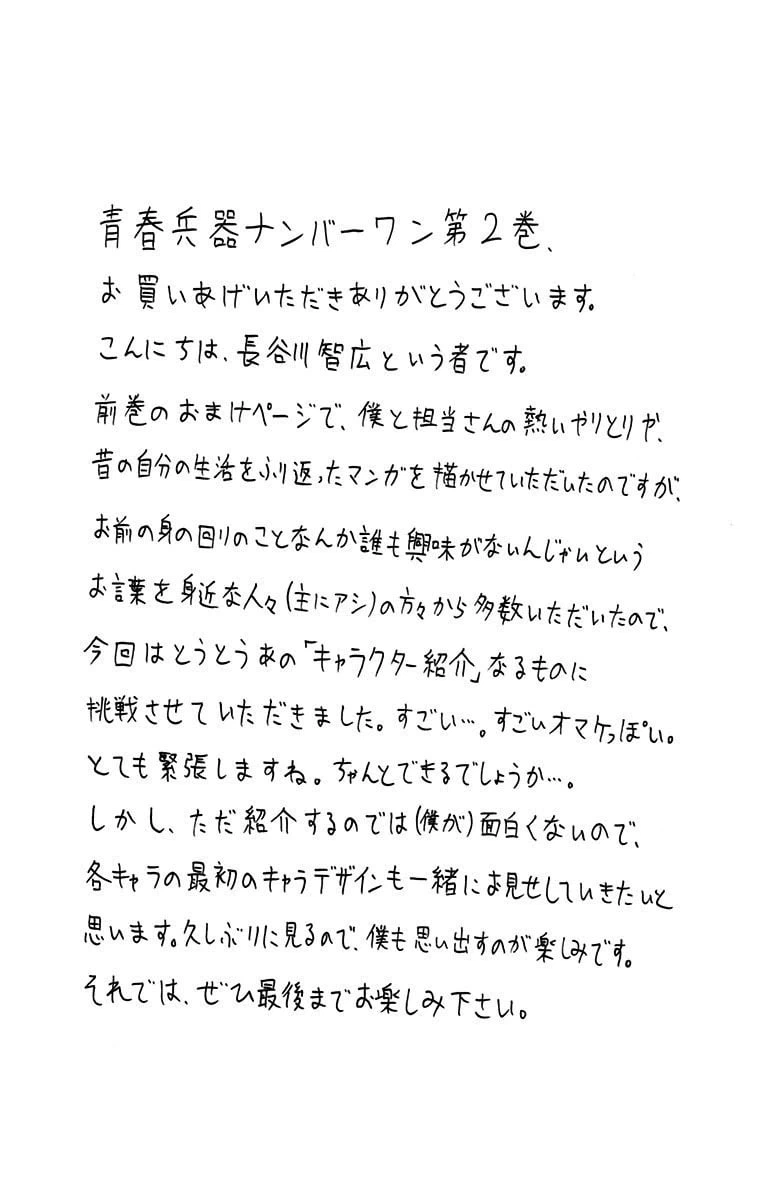 青春兵器ナンバーワン第2巻、
お買いあげいただきありがとうございます。
こんにちは、長谷川智広という者です。
前巻のおまけページで、僕と担当さんの熱いやりとりや、
昔の自分の生活をふり返ったマンガを描かせていただいたのですが、
お前の身の回りのことなんか誰も興味がないんじゃいという
お言葉を身近な人々(主にアシ)の方々から多数いただいたので、
今回はとうとうあの「キャラクター紹介」なるものに
挑戦させていただきました。すごい…。すごいオマケっぽい。
とても緊張しますね。ちゃんとできるでしょうか…。
しかし、ただ紹介するのでは(僕が)面白くないので、
各キャラの最初のキャラデザインも一緒にお見せしていきたいと
思います。久しぶりに見るので、僕も思い出すのが楽しみです。
それでは、ぜひ最後までお楽しみ下さい。